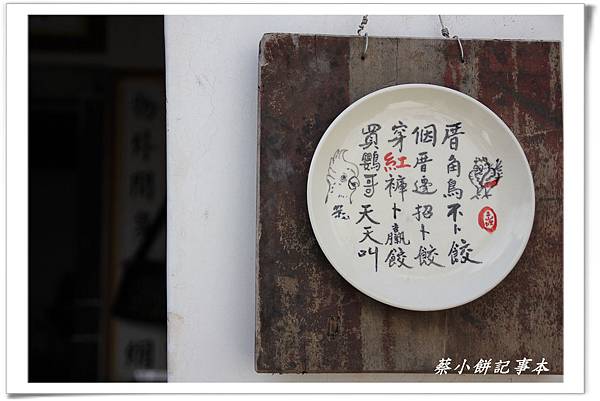 厝角鳥不卜餃
個厝邊招卜餃
穿紅褲卜贏餃
買鸚哥天天叫
蔡小餅記事本